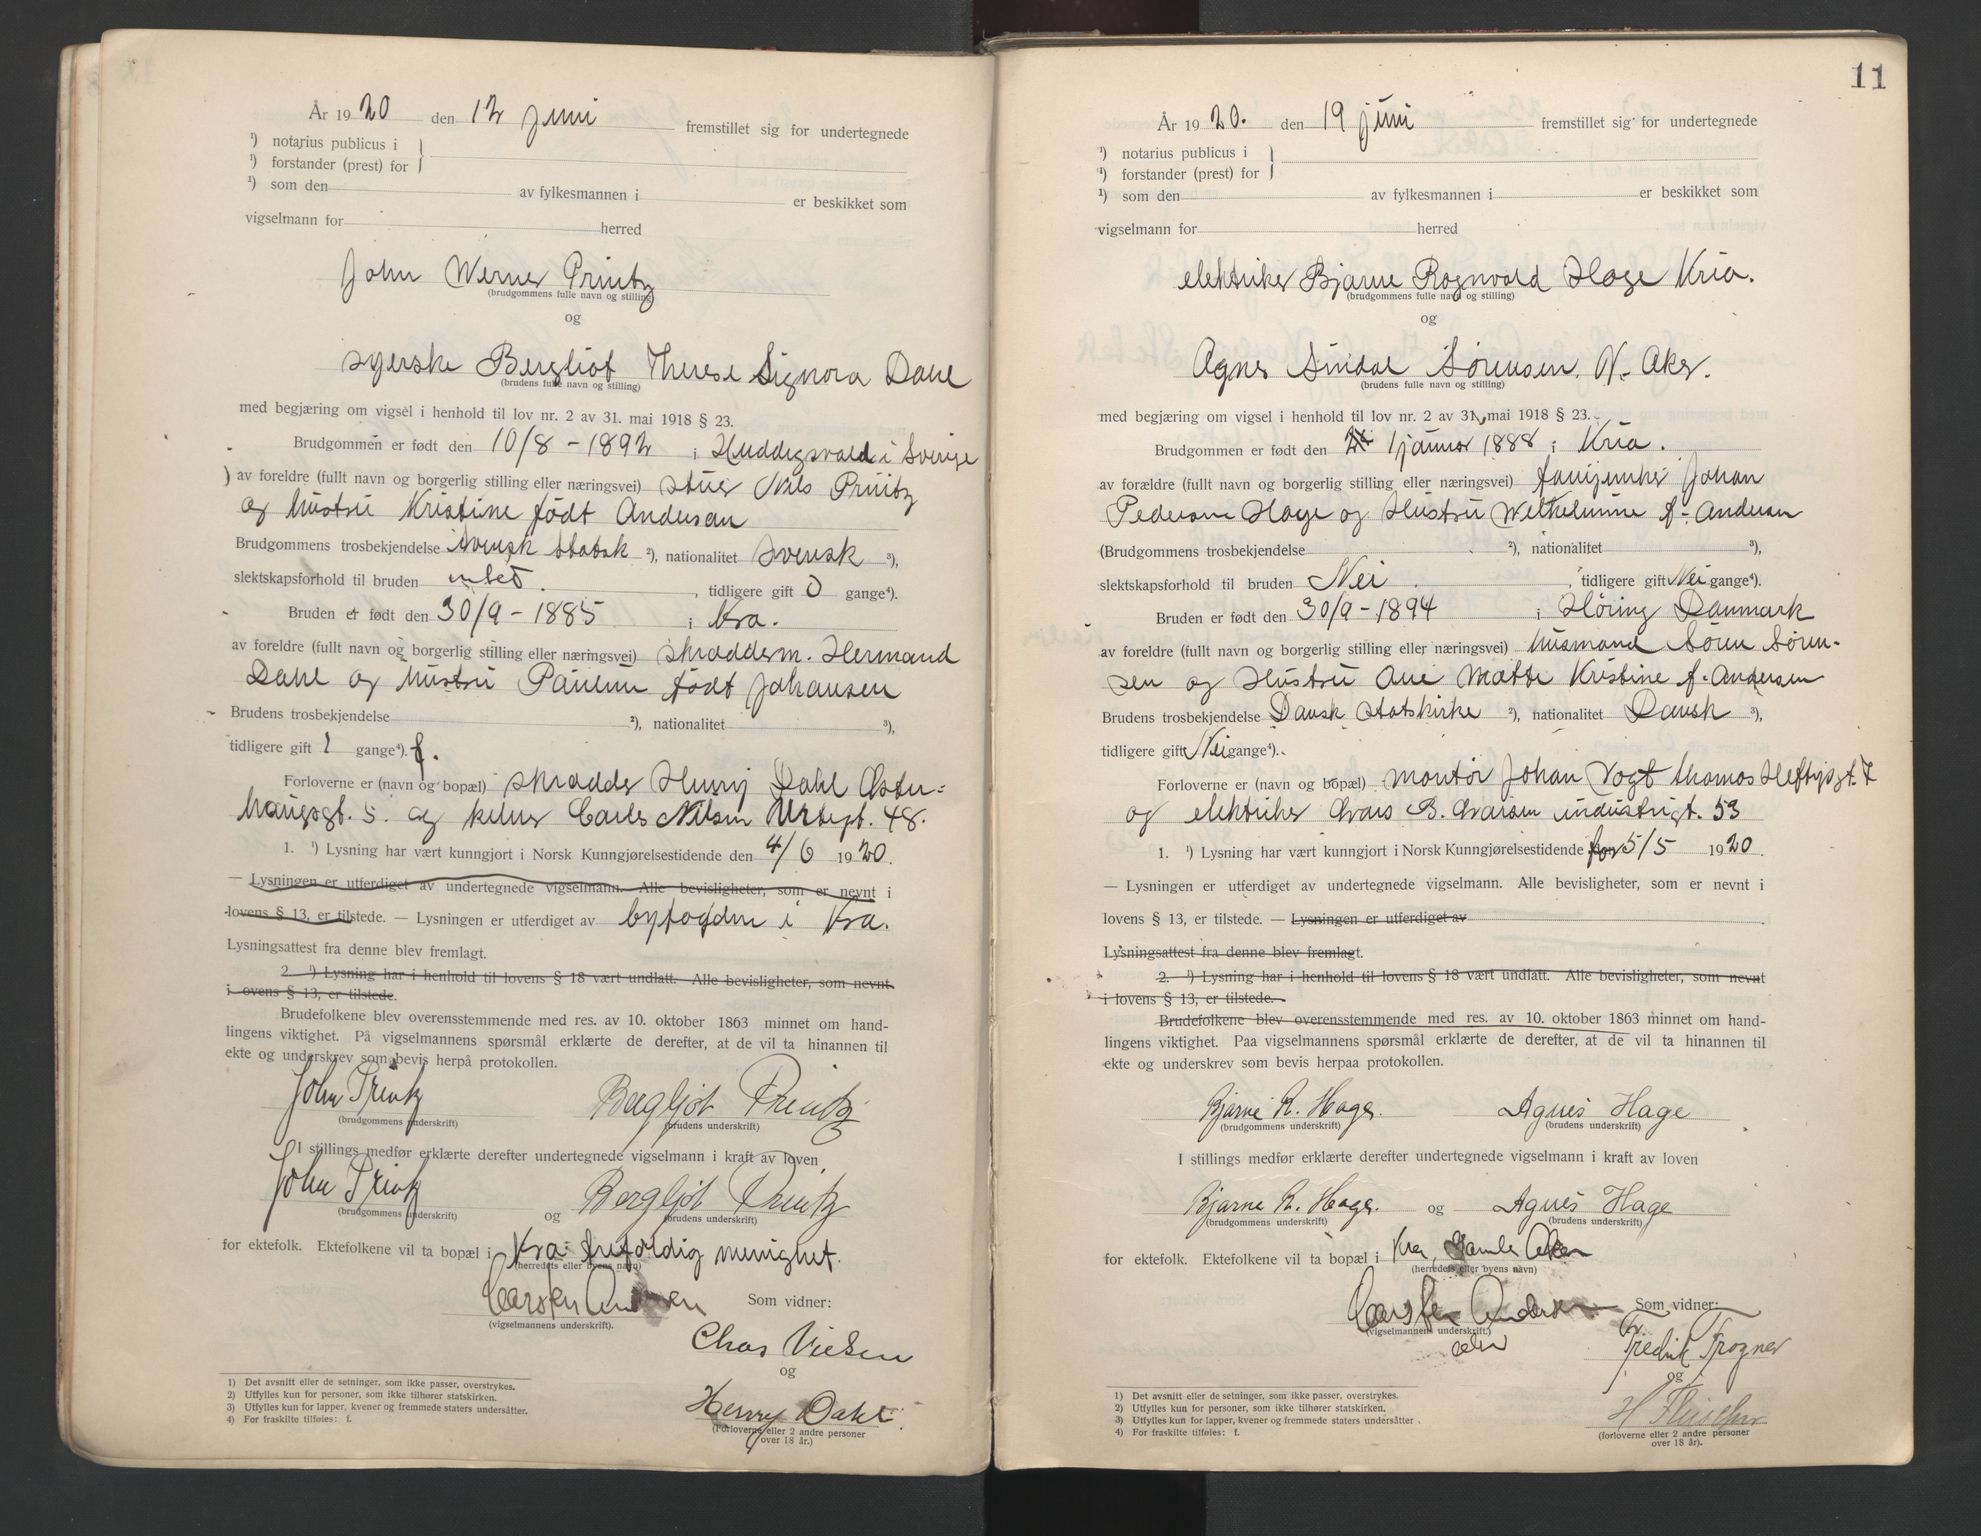 År 1920 den 12 juni fremstillet sig for undertegnede
¹) notarius publicus i
¹) forstander (prest) for
¹) som den av fylkesmannen i er beskikket som
vigselmann for herred
John Werner Printz
(brudgommens fulle navn og stilling)
og
syerske Bergliot Therese Signora Dahl
(brudens fulle navn og stilling)
med begjæring om vigsel i henhold til lov nr. 2 av 31. mai 1918 § 23.
Brudgommen er født den 10/8 - 1892 i Huddigsvald i Sverige
av foreldre (fullt navn og borgerlig stilling eller næringsvei) stuer Nils Printz
og hustru Kristine født Andersen
Brudgommens trosbekjendelse svensk statsk ²), nationalitet Svensk ³),
slektskapsforhold til bruden intet , tidligere gift 0 gange⁴).
Bruden er født den 30/9 - 1885 i Kra.
av foreldre (fullt navn og borgerlig stilling eller næringsvei) skradderm. Hermand
Dahl og hustru Pauline født Johansen
Brudens trosbekjendelse ²), nationalitet ³),
tidligere gift 1 gange⁴). f.
Forloverne er (navn og bopæl) skradder Henry Dahl Øster-
haugsgt. 5. og kelner Carles Nilsen Urtegt. 48.
1. ¹) Lysning har vært kunngjort i Norsk Kunngjørelsestidende den 4/6 1920.
— Lysningen er utferdiget av undertegnede vigselmann. Alle bevisligheter, som er nevnt i
lovens § 13, er tilstede. — Lysningen er utferdiget av byfogden i Kra.
Lysningsattest fra denne blev fremlagt.
2. ¹) Lysning har i henhold til lovens § 18 vært undlatt. Alle bevisligheter, som nevnt
i lovens § 13, er tilstede.
Brudefolkene blev overensstemmende med res. av 10. oktober 1863 minnet om hand-
lingens viktighet. På vigselmannens spørsmål erklærte de derefter, at de vil ta hinannen til
ekte og underskrev som bevis herpå protokollen.
John Printz Bergljot Printz
(brudgommens underskrift) (brudens underskrift)
I stillings medfør erklærte derefter undertegnede vigselmann i kraft av loven
John Printz og Bergljot Printz
(brudgommens underskrift) (brudens underskrift)
for ektefolk. Ektefolkene vil ta bopæl i Kra. trefoldig menighet.
(herredets eller byens navn)
Carsten Andersen Som vidner:
(vigselmannens underskrift).
Chas Nielsen
og
Henry Dahl
(Forloverne eller 2 andre personer
over 18 år.)
1) Det avsnitt eller de setninger, som ikke passer, overstrykes.
2) Utfylles kun for personer, som ikke tilhører statskirken.
3) Utfylles kun for lapper, kvener og fremmede staters undersåtter.
4) For fraskilte tilføies: f.
11
År 1920. den 19 juni fremstillet sig for undertegnede
¹) notarius publicus i
¹) forstander (prest) for
¹) som den av fylkesmannen i er beskikket som
vigselmann for herred
elektriker Bjarne Rognvald Hage Kria.
(brudgommens fulle navn og stilling)
og
Agnes Sindal Sørensen, V. Aker.
(brudens fulle navn og stilling)
med begjæring om vigsel i henhold til lov nr. 2 av 31. mai 1918 § 23.
Brudgommen er født den 1 januar 1888 i Kria.
av forældre (fullt navn og borgerlig stilling eller næringsvei) Johan
Pedersen Hage og Hustru Welhelmine f. Andersen
(Brudgommens trosbekjendelse ²), nationalitet ³),
slektskapsforhold til bruden Nei , tidligere gift Nei gange⁴).
Bruden er født den 30/9 - 1894 i Høring Danmark
av foreldre (fullt navn og borgerlig stilling eller næringsvei) husmand Søren Søren-
sen og Hustru Ane Mette Kristine f. Andersen
Brudens trosbekjendelse Dansk statskirke ²), nationalitet Dansk ³),
tidligere gift Nei gange⁴).
Forloverne er (navn og bopæl) montør Johan Vogt Thomas Heftyesgt. 7
og elektriker Ivars B. Ivarsen industrigt. 53
1. ¹) Lysning har vært kunngjort i Norsk Kunngjørelsestidende for 5/5 1920.
— Lysningen er utferdiget av undertegnede vigselmann. Alle bevisligheter, som er nevnt i
lovens § 13, er tilstede. — Lysningen er utferdiget av
Lysningsattest fra denne blev fremlagt.
2. ¹) Lysning har i henhold til lovens § 18 vært undlatt. Alle bevisligheter, som nevnt
i lovens § 13, er tilstede.
Brudefolkene blev overensstemmende med res. av 10. oktober 1863 minnet om hand-
lingens viktighet. Paa vigselmannens spørsmål erklærte de derefter, at de vil ta hinannen til
ekte og underskrev som bevis herpaa protokollen.
Bjarne R. Hage. Agnes Hage
(brudgommens underskrift) (brudens underskrift)
I stillings medfør erklærte derefter undertegnede vigselmann i kraft av loven
Bjarne R. Hage. og Agnes Hage
(brudgommens underskrift) (brudens underskrift)
for ektefolk. Ektefolkene vil ta bopæl i Kra, Gamle Aker
(herredets eller byens navn)
Carsten Andersen Som vidner:
(vigselmannens underskrift.)
Fredrik Frogner
og
H Fleischer
(forloverne eller 2 andre personer
over 18 år).
1) Det avsnitt eller de setninger, som ikke passer, overstrykes.
2) Utfylles kun for personer, som ikke tilhører statskirken.
3) Utfylles kun for lapper, kvener og fremmede staters undersåtter.
4) For fraskilte tilføies: f.